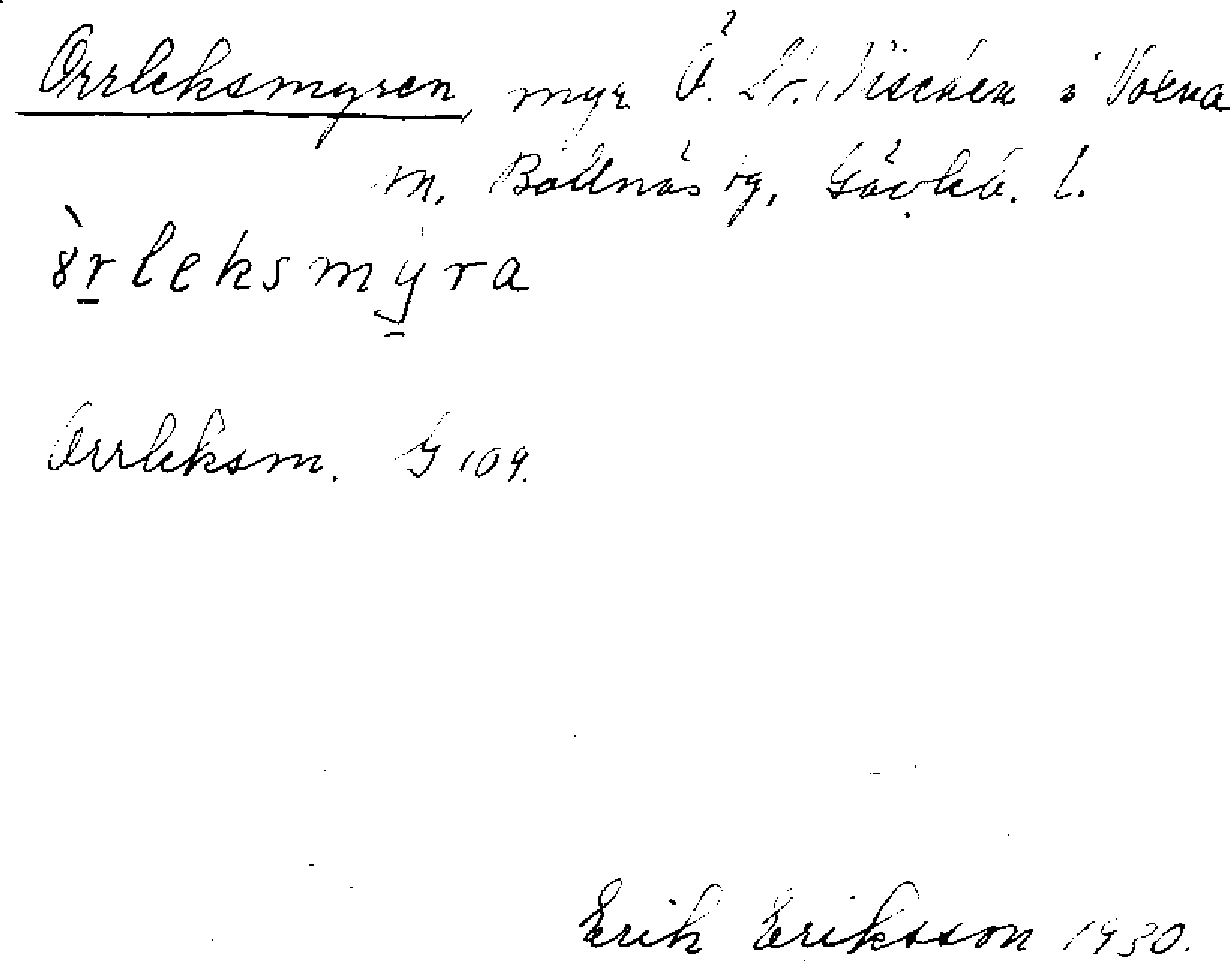 Orrleksmyren, myr Ö. St. i Voxna
m. Bollnäs tg, Gävleb. l.
òrleksmyra
Orrleksm. G 109.
Erik Eriksson 1930.